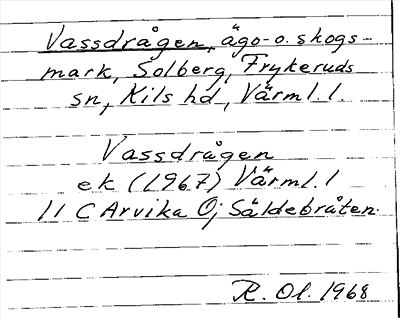 Vassdrågen, ägo- o. skogs-
mark, Solberg, Frykeruds
sn, Kils hd, Värml. l.
Vassdrågen
ek (1967) Värml. l
11 C Arvika Öj Säldebråten.
R. Ol. 1968